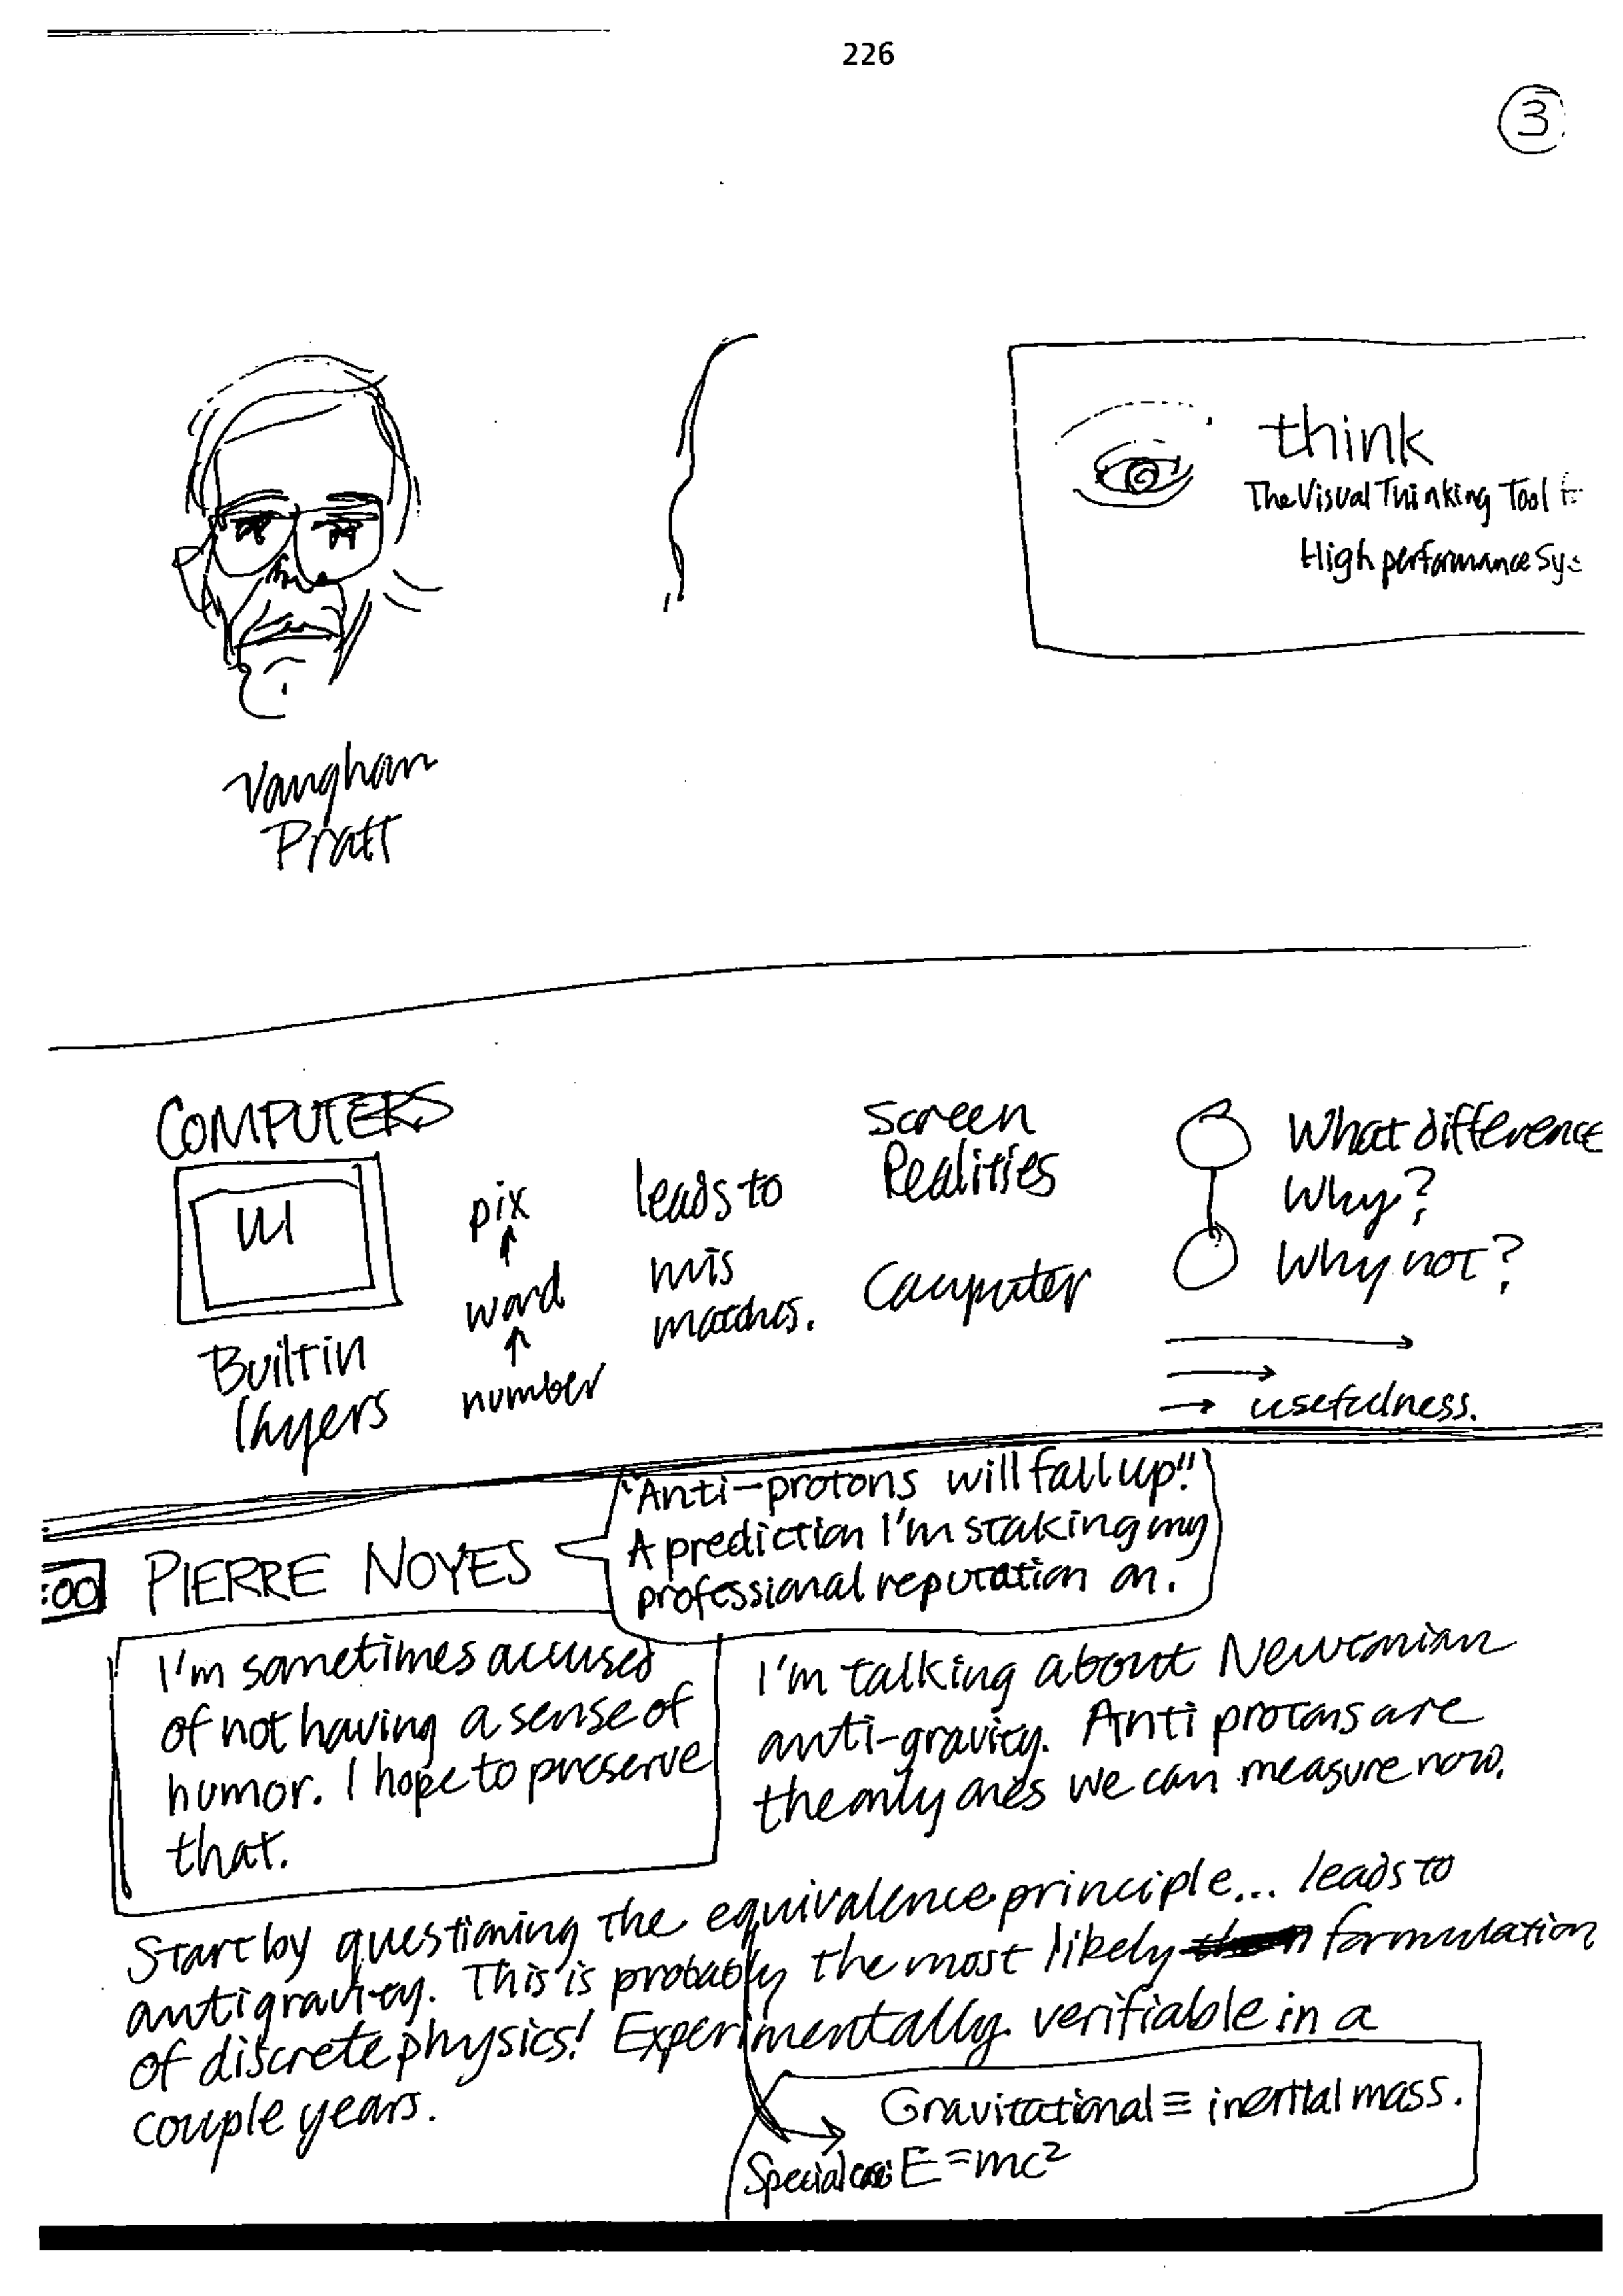 226
3
think
The Visual Thinking Tool
High performance Sys
Vaughan
Pratt
COMPUTERS
Built in
layers
pix
word
number
leads to
mis
matches.
Screen
Realities
Computer
What difference
Why?
Why not?
usefulness.
:00 PIERRE NOYES
"Anti-protons will fall up!!
A prediction I'm staking my
professional reputation on.
I'm sometimes accused
of not having a sense of
humor. I hope to preserve
that.
I'm talking about Newtonian
anti-gravity. Anti protons are
the only ones we can measure now.
Start by questioning the equivalence principle... leads to
antigravity. This is probably the most likely formulation
of discrete physics! Experimentally verifiable in a
couple years.
Gravitational ≡ inertial mass.
Special case: E=mc²